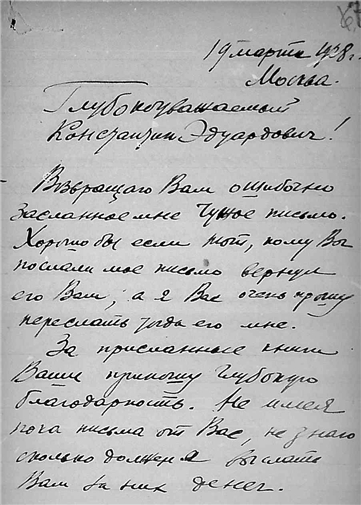 19 марта 1928 г.
Москва.
Глубокоуважаемый
Константин Эдуардович!
Возвращаю Вам ошибочно
засланное мне чужое письмо.
Хорошо бы если тот, кому Вы
послали мое письмо вернул
его Вам, а я Вас очень прошу
переслать тогда его мне.
За присланные книги
Ваши приношу глубокую
благодарность. Не имея
пока письма от Вас, не знаю
сколько должен я выслать
Вам за них денег.